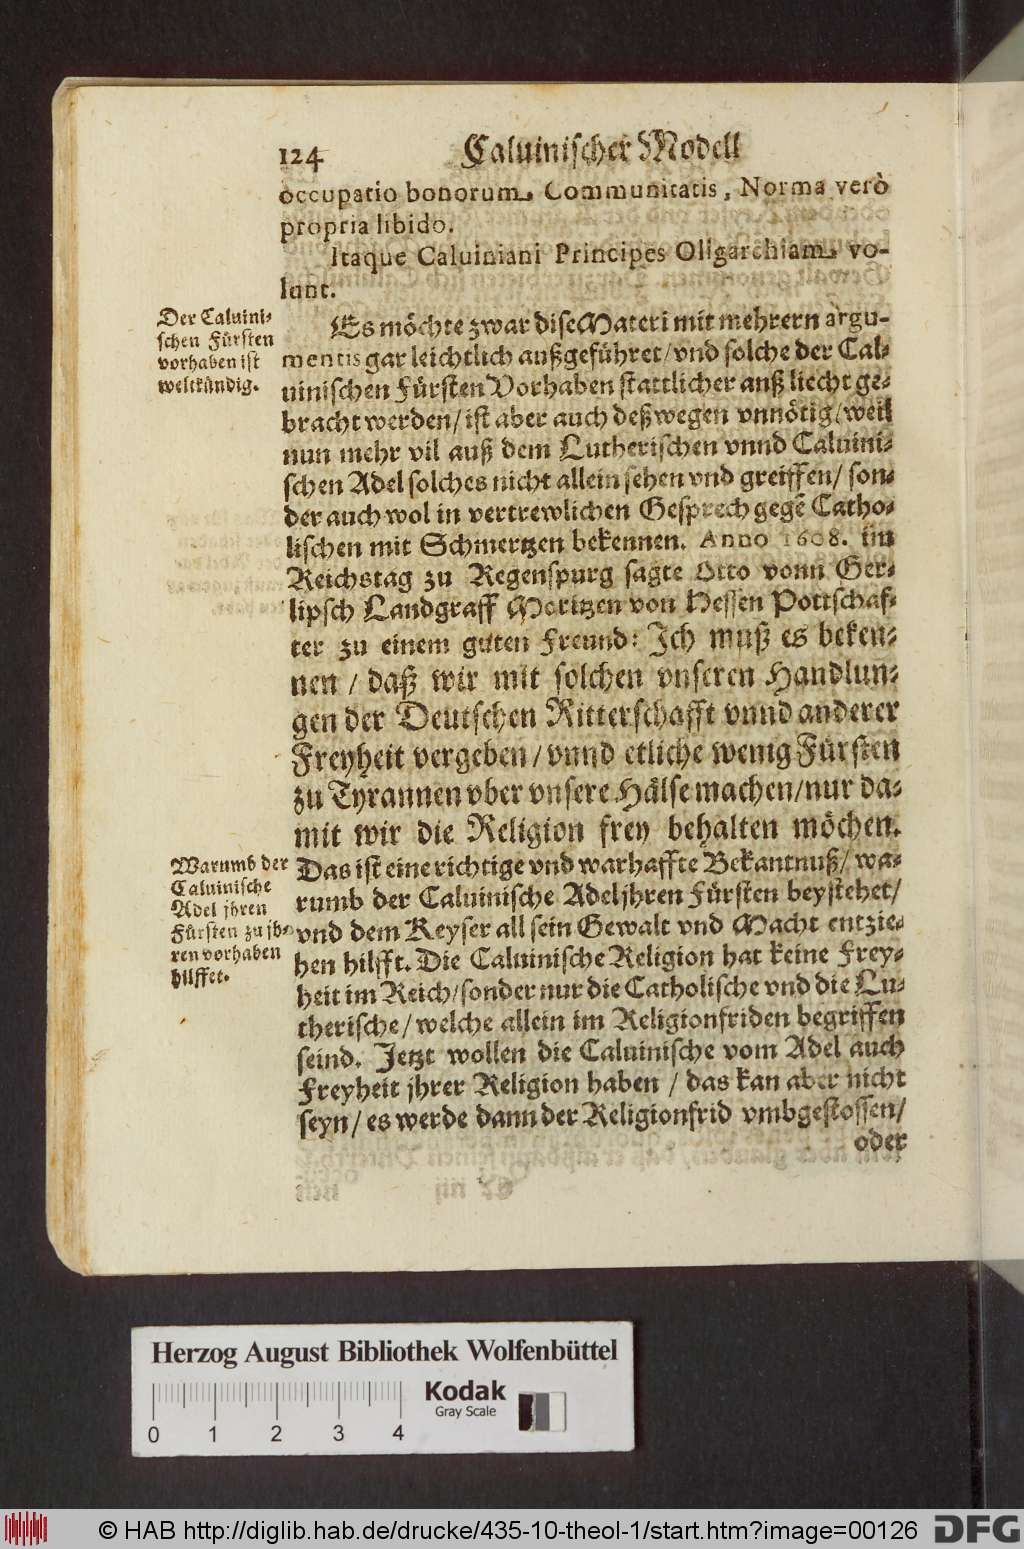 124 Caluinischer Modell
occupatio bonorum Communitatis, Norma verò
propria libido.
Itaque Caluiniani Principes Oligarchiam vo-
lunt.
Der Caluini-
schen Fürsten
vorhaben ist
weltkündig.
Es möchte zwar dise Materi mit mehrern argu-
mentis gar leichtlich außgeführet/ vnd solche der Cal-
uinischen Fürsten Vorhaben stattlicher anß liecht ge-
bracht werden/ ist aber auch deßwegen vnnötig/ weil
nun mehr vil auß dem Lutherischen vnnd Caluini-
schen Adel solches nicht allein sehen vnd greiffen/ son-
der auch wol in vertrewlichen Gesprech gegē Catho-
lischen mit Schmertzen bekennen. Anno 1608. im
Reichstag zu Regenspurg sagte Otto vonn Ger-
lipsch Landgraff Moritzen von Hessen Pottschaf-
ter zu einem guten Freund: Ich muß es beken-
nen / daß wir mit solchen vnseren Handlun-
gen der Deutschen Ritterschafft vnnd anderer
Freyheit vergeben / vnnd etliche wenig Fürsten
zu Tyrannen vber vnsere Hälse machen/ nur da-
mit wir die Religion frey behalten möchen.
Warumb der
Caluinische
Adel jhren
Fürsten zu jh-
ren vorhaben
hilffet.
Das ist eine richtige vnd warhaffte Bekantnuß/ wa-
rumb der Caluinische Adel jhren Fürsten beystehet/
vnd dem Keyser all sein Gewalt vnd Macht entzie-
hen hilfft. Die Caluinische Religion hat keine Frey-
heit im Reich/ sonder nur die Catholische vnd die Lu-
therische/ welche allein im Religionfriden begriffen
seind. Jetzt wollen die Caluinische vom Adel auch
Freyheit jhrer Religion haben / das kan aber nicht
seyn / es werde dann der Religionfrid vmbgestossen/
oder
Herzog August Bibliothek Wolfenbüttel
Kodak
Gray Scale
0 1 2 3 4
© HAB http://diglib.hab.de/drucke/435-10-theol-1/start.htm?image=00126
DFG